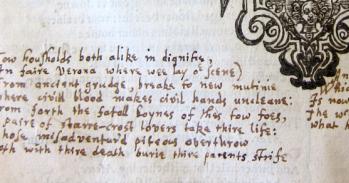 housholds both alike in dignitie,
faire Verona where wee lay oe scene)
From ancient grudge, breake to new mutinie
where civill blood makes civill hands uncleane:
From forth the fatall loynes of thes tow foes,
paire of starre-crost lovers take thire life:
hose misadventur'd piteous overthrow
oth with thire death burie thire parents strife
Its now
The
what